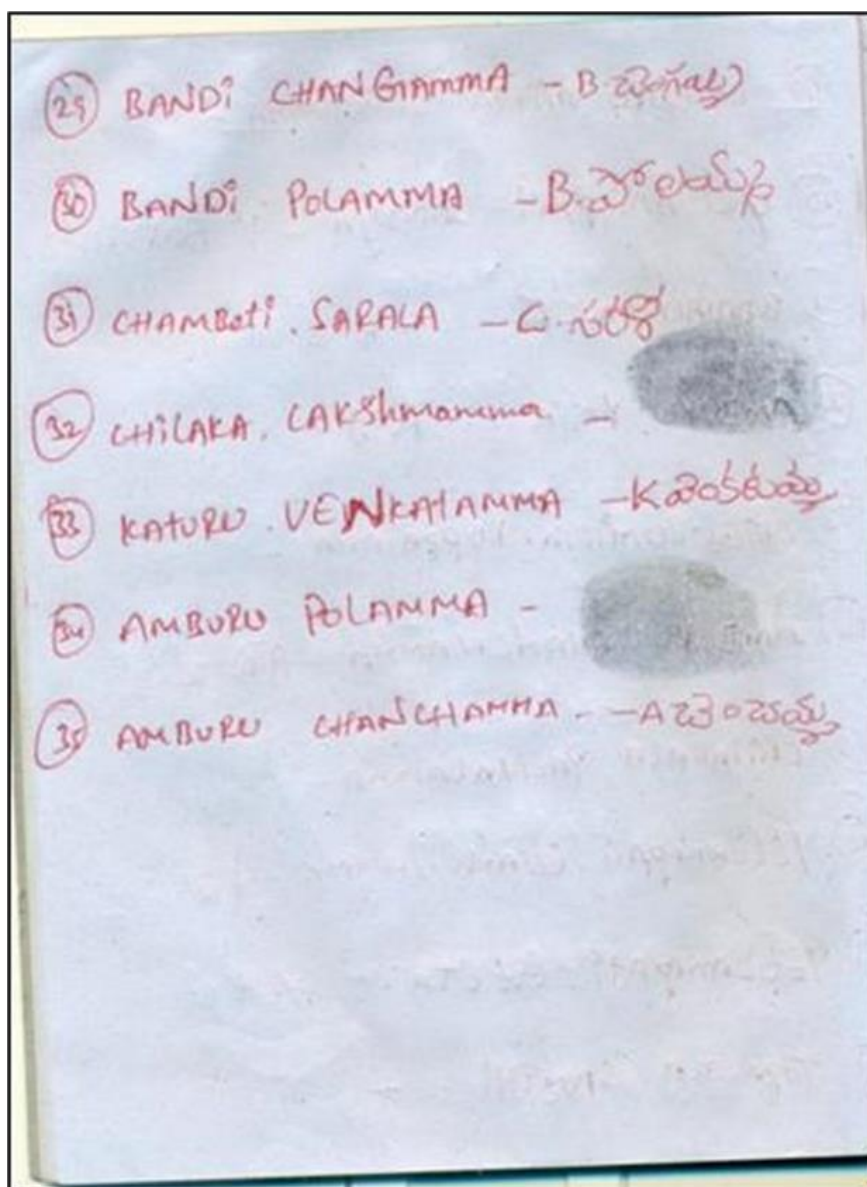 29 BANDi CHANGAMMA - B
30 BANDi POLAMMA - B. పోలమ్మ
31 CHAMBeti. SARALA - C. సరళ
32 CHiLAKA. LAKShmamma -
33 KATURU. VENKATAMMA - K వెంకటమ్మ
34 AMBURU POLAMMA -
35 AMBURU CHANCHAMMA - - A చెంచమ్మ